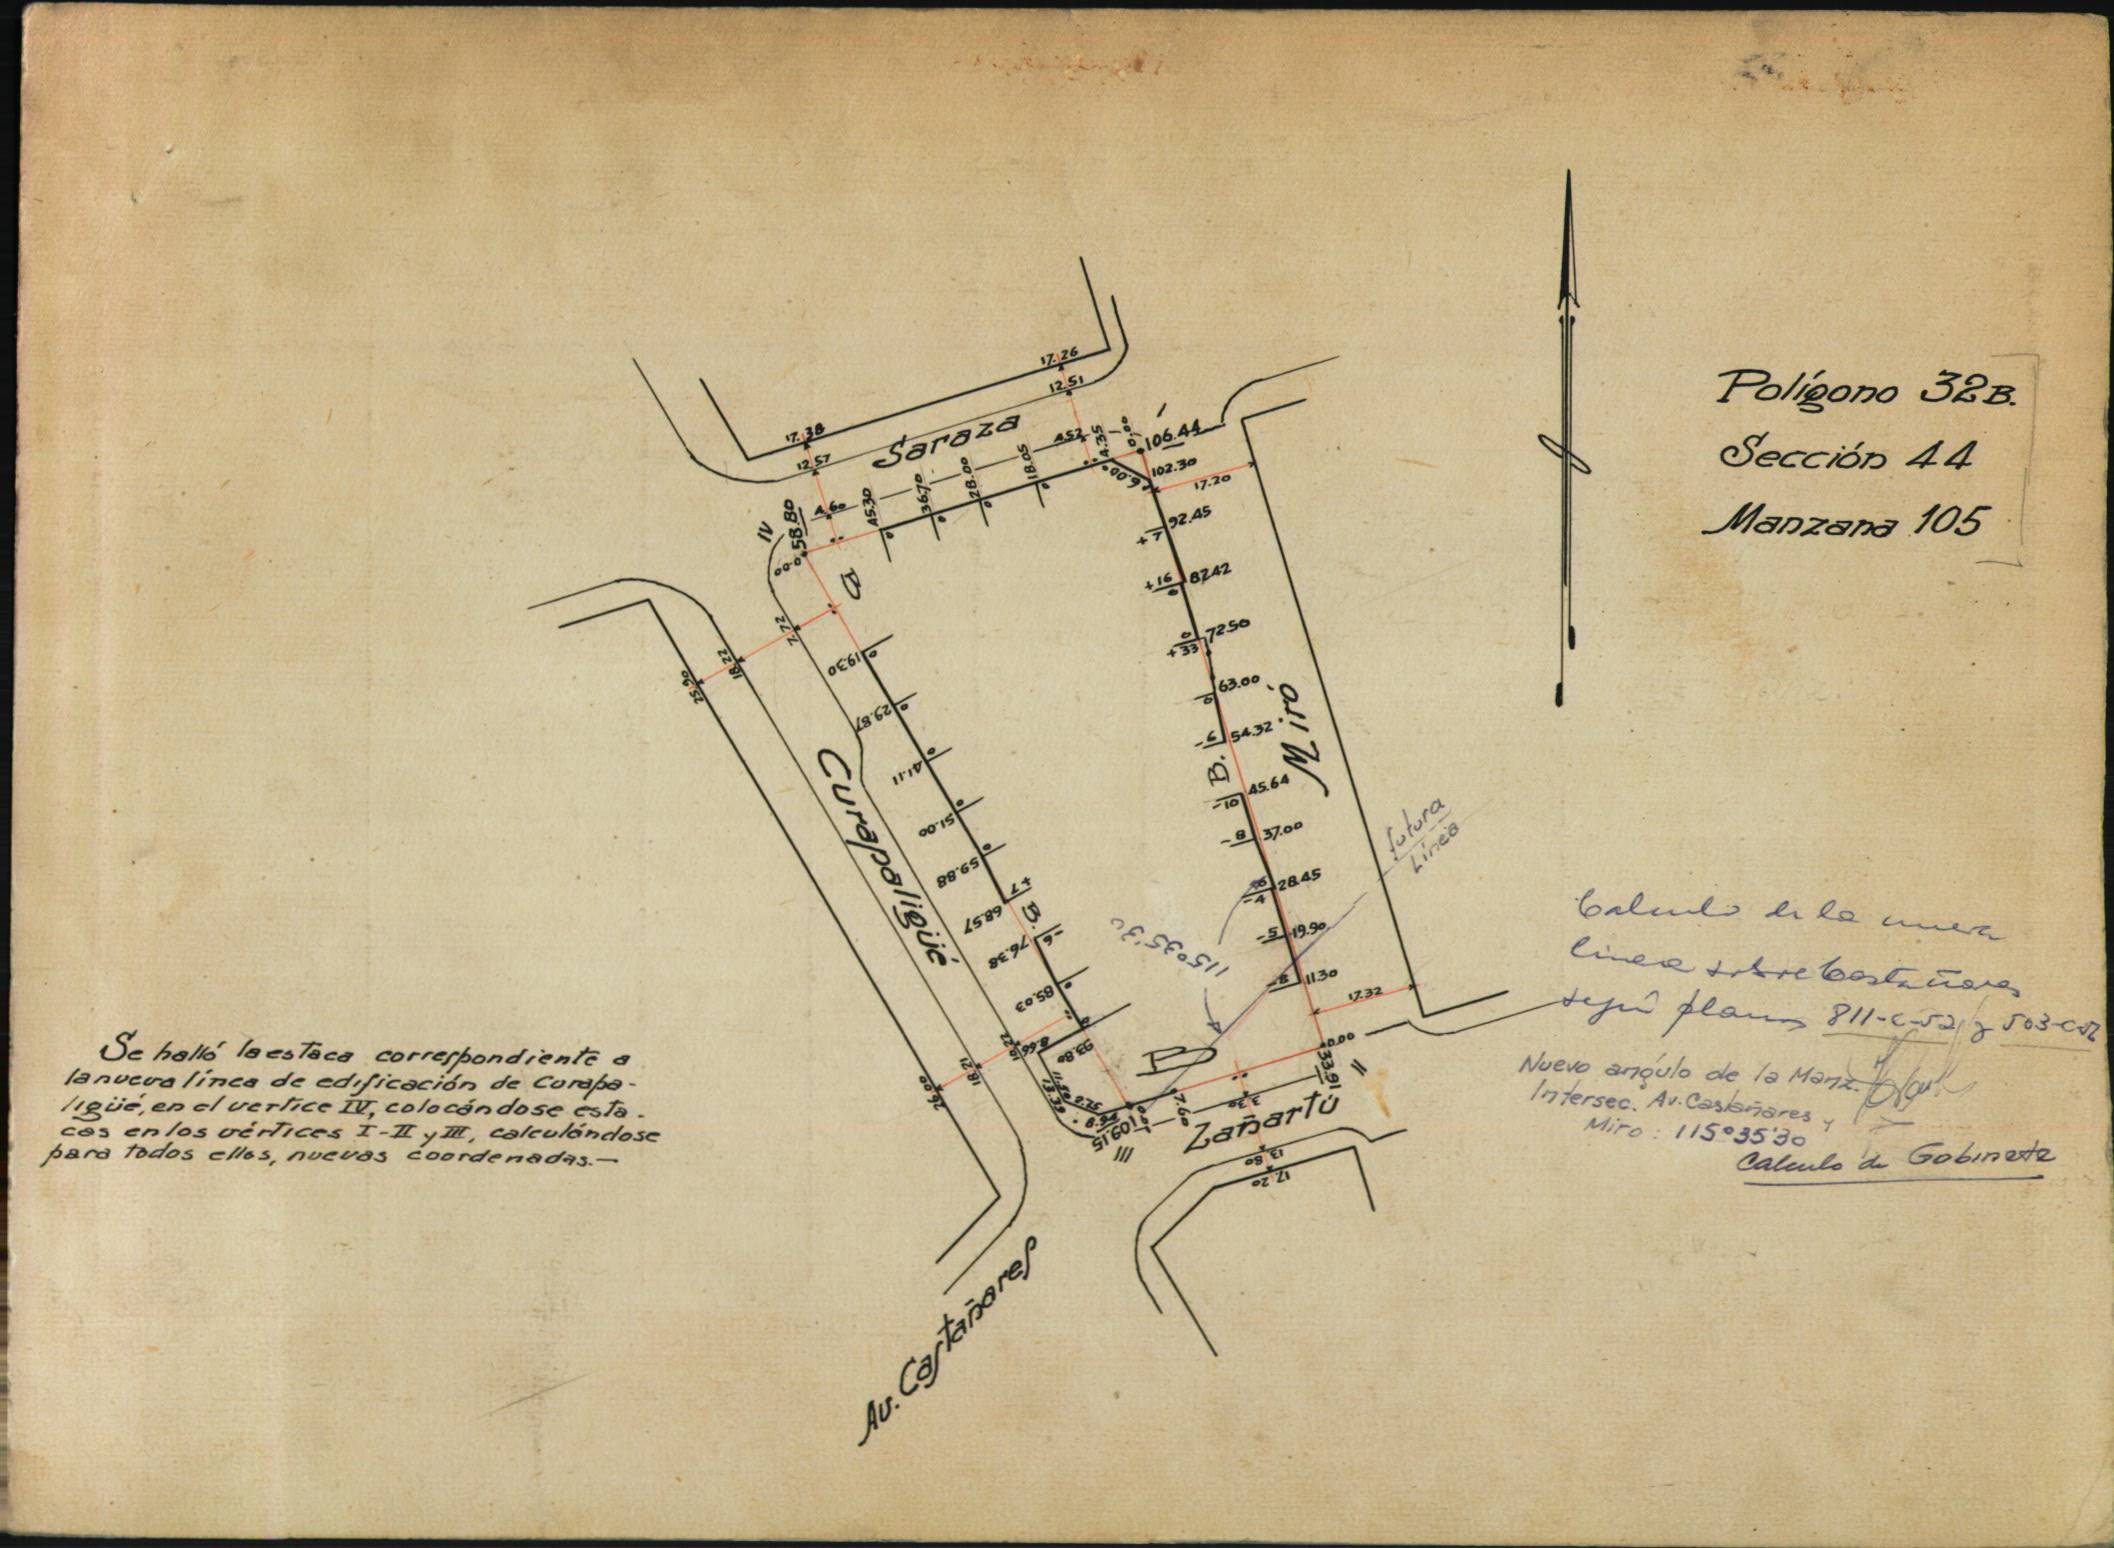 Polígono 32B.
Sección 44
Manzana 105
17.26
12.51
17.38
12.57
Saraza
4.52
4.35
0.00
I
106.44
102.30
6.00
17.20
18.05
28.00
36.70
45.30
4.60
IV
58.80
0.00
B
92.45
+7
+16
82.42
0
0
72.50
+33
63.00
0
-6
54.32
B.
Miró
45.64
-10
-8
37.00
28.45
-4
-5
19.90
-8
11.30
17.32
0.00
33.91
II
7.72
18.22
25.90
19.30
0
29.87
0
41.11
0
51.00
0
59.88
0
+7
68.57
B.
-6
76.38
85.03
0
Curapaligüé
8.66
93.80
18.21
26.00
13.39
109.15
III
7.60
3.30
B
Zañartú
13.80
17.20
Av. Castañares
futura
Línea
115°35'30
Se halló la estaca correspondiente a
la nueva línea de edificación de Curapa-
ligüé, en el vertice IV, colocándose esta-
cas en los vértices I-II y III, calculándose
para todos ellos, nuevas coordenadas.—
Calculo de la nueva
linea sobre Castañares
según planos 811-C-52 y 503-C-52
Nuevo angúlo de la Manz.
Intersec. Av. Castañares y
Miro: 115°35'30
Calculo de Gabinete